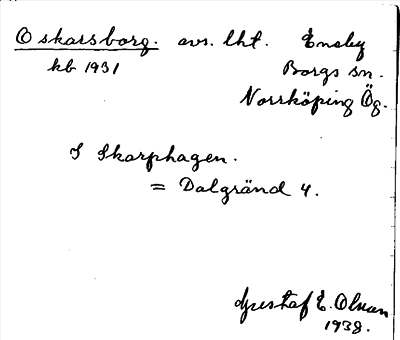 Oskarsborg. avs. lht. Eneby
kb 1931 Borgs sn.
Norrköping Ög.
I Skarphagen.
= Dalgränd 4.
Gustaf E. Olsson
1938.